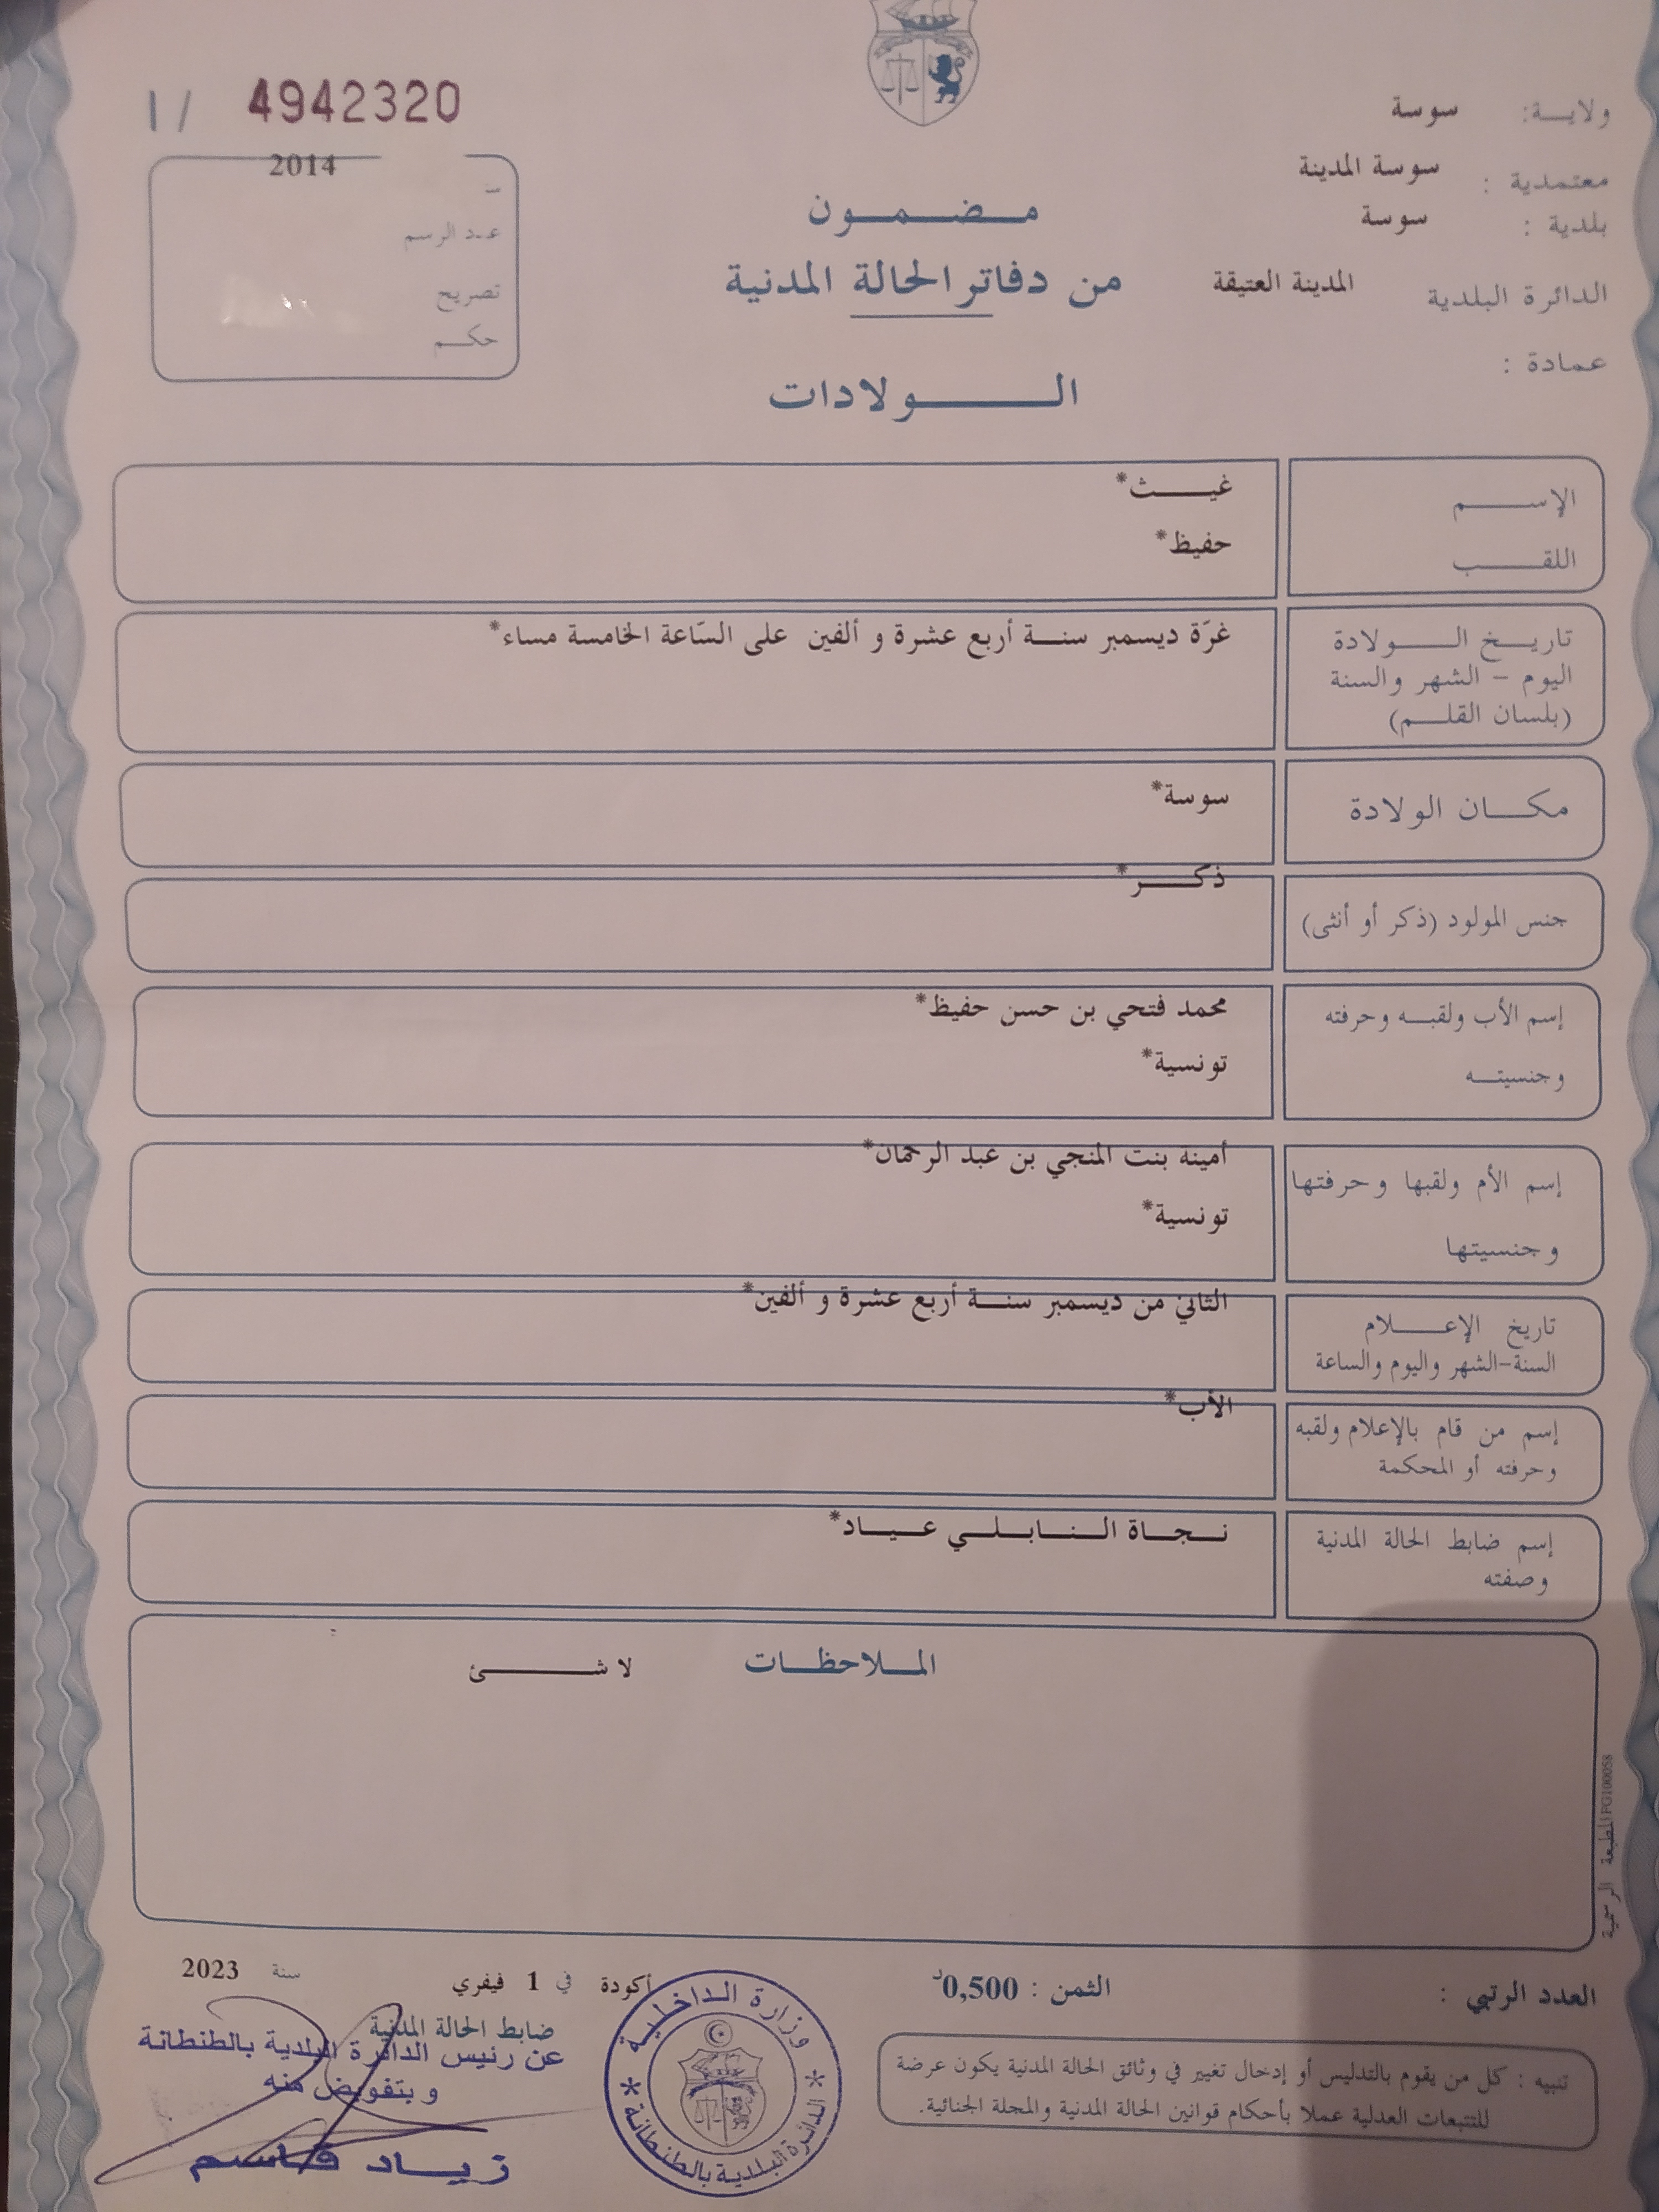 ولاية: سوسة
معتمدية : سوسة المدينة
بلدية : سوسة
الدائرة البلدية المدينة العتيقة
عمادة :
1/ 4942320
2014
عدد الرسم
تصريح
حكم
مضمون
من دفاتر الحالة المدنية
الولادات
الإسم غيث*
اللقب حفيظ*
تاريخ الولادة غرّة ديسمبر سنة أربع عشرة و ألفين على السّاعة الخامسة مساء*
اليوم - الشهر والسنة
(بلسان القلم)
مكان الولادة سوسة*
جنس المولود (ذكر أو أنثى) ذكر*
إسم الأب ولقبه وحرفته محمد فتحي بن حسن حفيظ*
وجنسيته تونسية*
إسم الأم ولقبها وحرفتها أمينة بنت المنجي بن عبد الرحمان*
وجنسيتها تونسية*
تاريخ الإعلام الثاني من ديسمبر سنة أربع عشرة و ألفين*
السنة-الشهر واليوم والساعة
إسم من قام بالإعلام ولقبه الأب*
وحرفته أو المحكمة
إسم ضابط الحالة المدنية نجاة النابلي عياد*
وصفته
الملاحظات لا شئ
المطبعة الرسمية FG100058
العدد الرتبي :
الثمن : 0,500د
أكودة في 1 فيفري سنة 2023
ضابط الحالة المدنية
عن رئيس الدائرة البلدية بالطنطانة
و بتفويض منه
زياد قاسم
وزارة الداخلية
* الدائرة البلدية بالطنطانة *
تنبيه : كل من يقوم بالتدليس أو إدخال تغيير في وثائق الحالة المدنية يكون عرضة
للتتبعات العدلية عملا بأحكام قوانين الحالة المدنية والمجلة الجنائية.